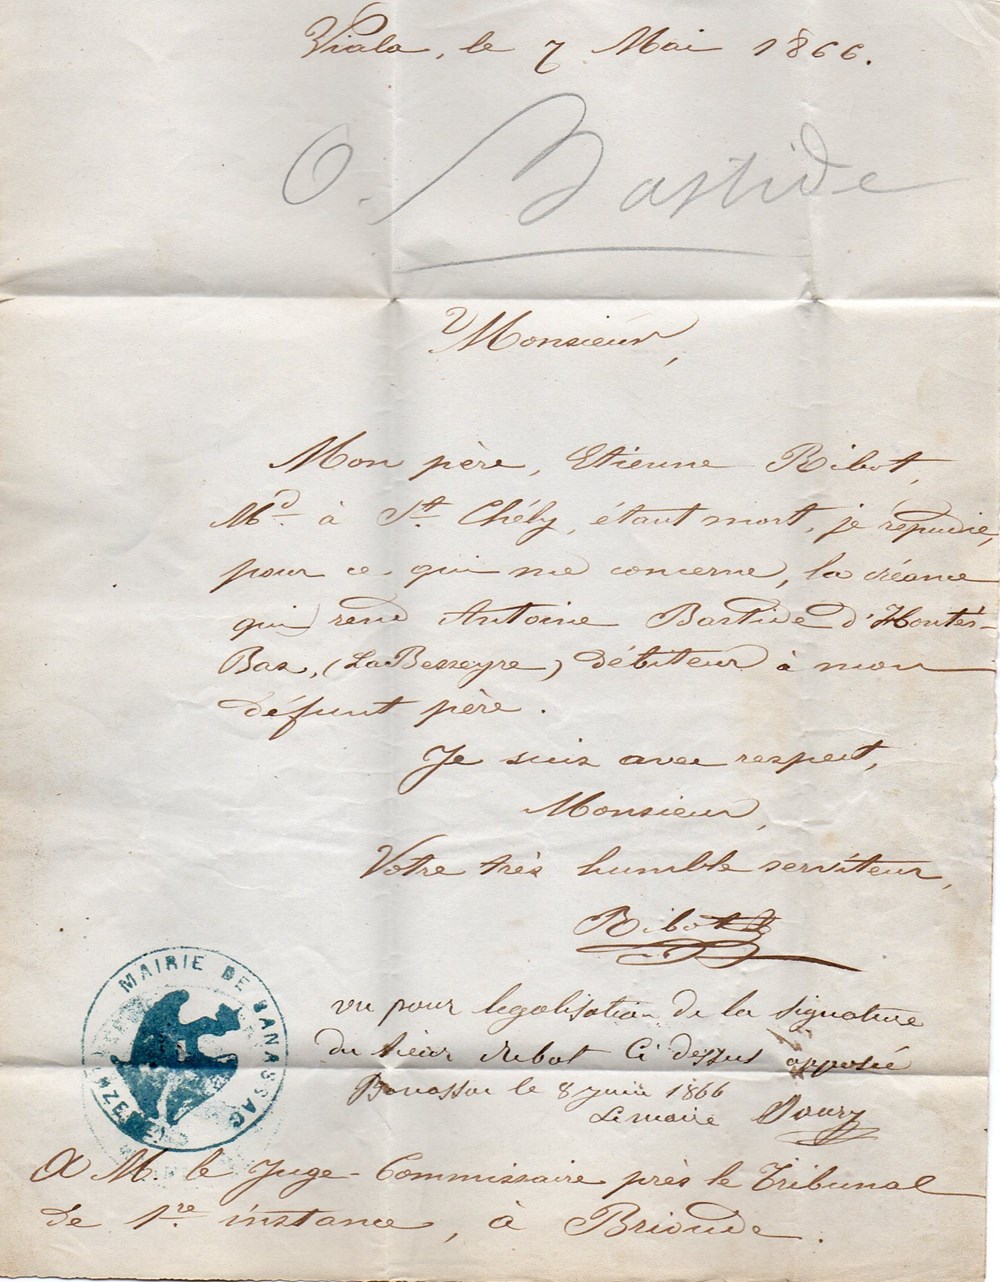 Viala, le 7 Mai 1866.
O. Bastide
Monsieur,
Mon père, Etienne Ribot,
Md. à St. Chély, étant mort, je répudie,
pour ce qui me concerne, la créance
qui rend Antoine Bastide d'Hontès-
Bas, (LaBesseyre) débiteur à mon
défunt père.
Je suis avec respect,
Monsieur,
Votre très humble serviteur,
Ribot
vu pour legalisation de la signature
du sieur Ribot Ci dessus apposée
Banassac le 8 juin 1866
Le maire
MAIRIE DE BANASSAC
LOZÈRE
A M. le Juge-Commissaire près le Tribunal
de 1re instance, à Brioude.